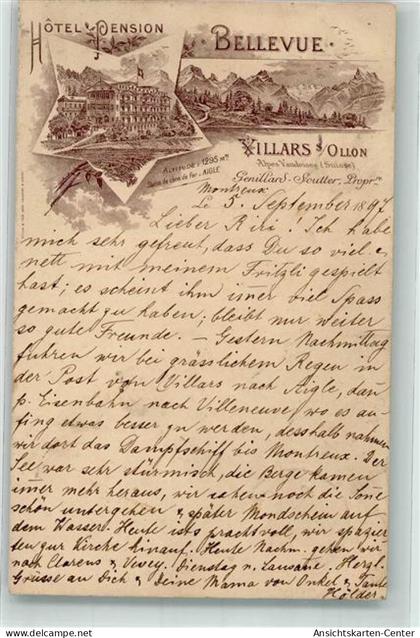 HÔTEL-PENSION
BELLEVUE
VILLARS S/OLLON
Alpes Vaudoises (Suisse)
Genillard-Soutter, Propr.
ALTITUDE: 1295 Mts
Station de chem. de Fer: AIGLE
Montreux
Le 5. September 1897
Lieber Kiri! Ich habe
mich sehr gefreut, dass Du so viel &
nett mit meinem Fritzli gespielt
hast; es scheint ihm imer viel Spass
gemacht zu haben; bleibt nur weiter
so gute Freunde. — Gestern Nachmittag
fuhren wir bei grässlichem Regen in
der Post von Villars nach Aigle, dan
p. Eisenbahn nach Villeneuve, wo es an-
fing etwas besser zu werden, desshalb nahmen
wir dort das Dampfschiff bis Montreux. Der
See war sehr stürmisch, die Berge kamen
imer mehr heraus, wir sahen noch die Sone
schön untergehen & später Mondschein auf
dem Wasser. Heute ists prachtvoll, wir spazier-
ten zur Kirche hinauf. Heute Nachm. gehen wir
nach Clarens & Vevey. Dienstag n. Lausane. Herzl.
Grüsse an Dich & Deine Mama von Onkel & Tante
Hölder.
https://www.delcampe.net
Ansichtskarten-Center